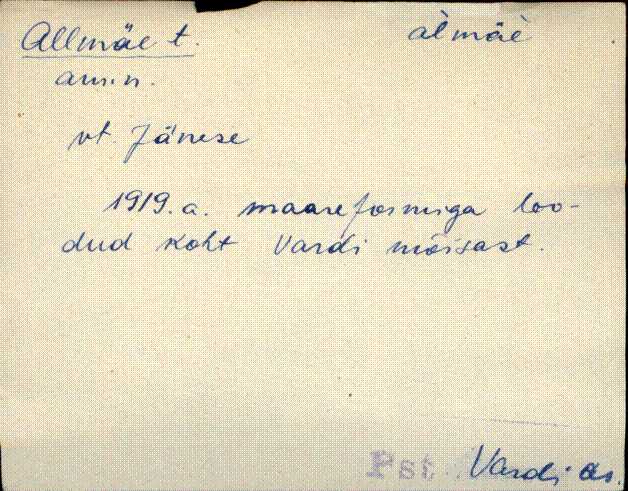 Allmäe t. àlmäè
am.n.
vt. Jänese
1919.a. maareformiga loo-
dud koht Vardi mõisast.
Pst Vardi as.